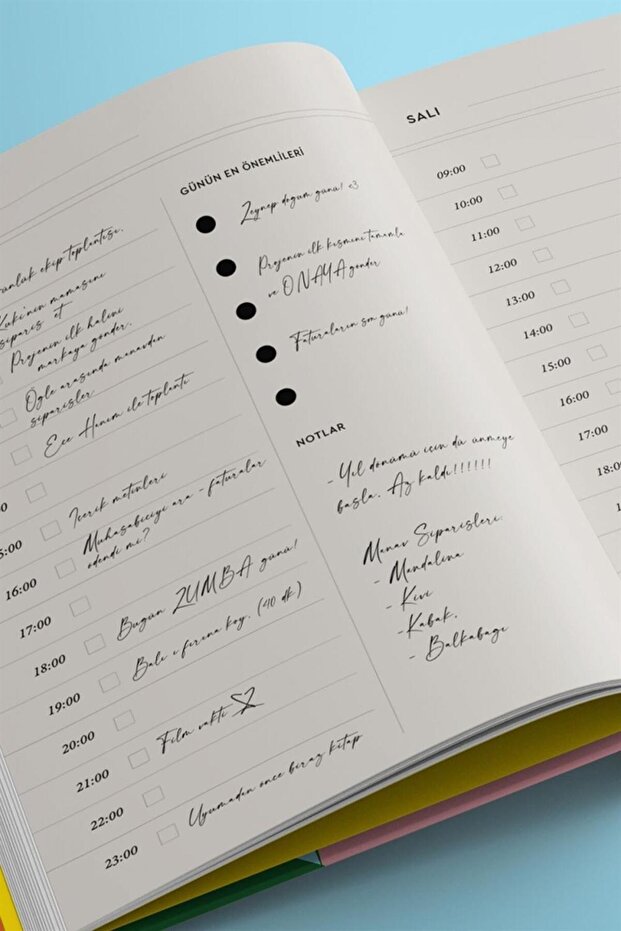 ekip toplantısı.
Kuki'nin mamasını
sipariş et
Projenin ilk halini
markaya gönder.
Öğle arasında manavdan
siparişler
Ece Hanım ile toplantı
İçerik metinleri
16:00 Muhasabeciyi ara - faturalar
ödendi mi?
17:00
18:00 Bugün ZUMBA günü!
19:00 Balı ı fırına koy. (40 dk)
20:00
21:00 Film vakti
22:00
23:00 Uyumadan önce biraz kitap
GÜNÜN EN ÖNEMLİLERİ
Zeynep doğum günü! <3
Projenin ilk kısmını tamamla
ve ONAYA gönder
Faturaların son günü!
NOTLAR
- Yıl dönümü için dü ünmeye
başla. Az kaldı!!!!!!
Manav Siparişleri:
- Mandalina
- Kivi
-Kabak,
- Balkabağı
SALI
09:00
10:00
11:00
12:00
13:00
14:00
15:00
16:00
17:00